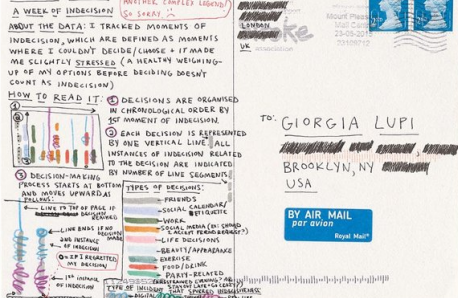 ANOTHER COMPLEX LEGEND!
SO SORRY
A WEEK OF INDECISION
ABOUT THE DATA: I TRACKED MOMENTS OF
INDECISION, WHICH ARE DEFINED AS MOMENTS
WHERE I COULDN'T DECIDE/CHOOSE + IT MADE
ME SLIGHTLY STRESSED (A HEALTHY WEIGHING-
UP OF MY OPTIONS BEFORE DECIDING DOESN'T
COUNT AS INDECISION)
HOW TO READ IT:
1 DECISIONS ARE ORGANISED
IN CHRONOLOGICAL ORDER BY
1ST MOMENT OF INDECISION.
2 EACH DECISION IS REPRESENTED
BY ONE VERTICAL LINE. ALL
INSTANCES OF INDECISION RELATED
TO THE DECISION ARE INDICATED
BY NUMBER OF LINE SEGMENTS.
3 DECISION-MAKING
PROCESS STARTS AT BOTTOM
AND MOVES UPWARD AS
FOLLOWS:
LINE TO TOP OF PAGE IF
DECISION
LINE ENDS IF NO
DECISION MADE
2ND INSTANCE
OF INDECISION
IF I REGRETTED
MY DECISION
1ST INSTANCE OF
INDECISION
TYPES OF DECISIONS:
FRIENDS
SOCIAL CALENDAR/
ETIQUETTE
WORK
SOCIAL MEDIA (EX: SHOULD
I ACCEPT
LIFE DECISIONS
BEAUTY/APPEARANCE
EXERCISE
FOOD/DRINK
PARTY-RELATED
TYPE OF INCIDENT
THAT SPURRED INDECISIVENESS:
DIGITAL
LONDON
UK
Mount Pleasant
Mail Centre
23-06-2015
TO:
GIORGIA LUPI
BROOKLYN, NY
USA
BY AIR MAIL
par avion
Royal Mail